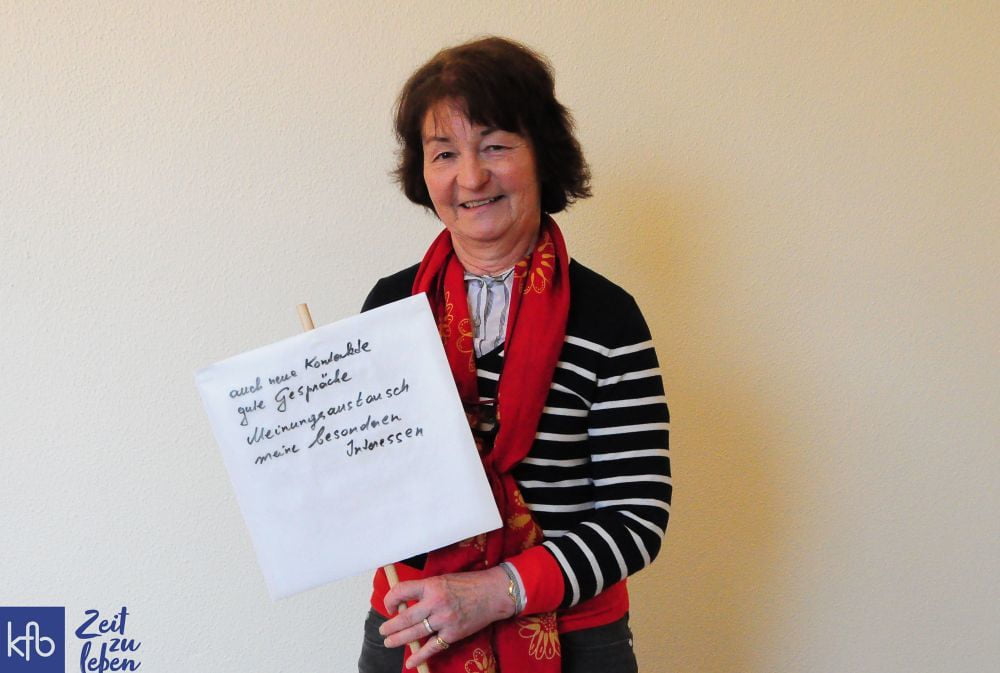 auch neue Kontakde
gute Gespräche
Meinungsaustausch
meine besonderen
Interessen
kfb
Zeit
zu
leben